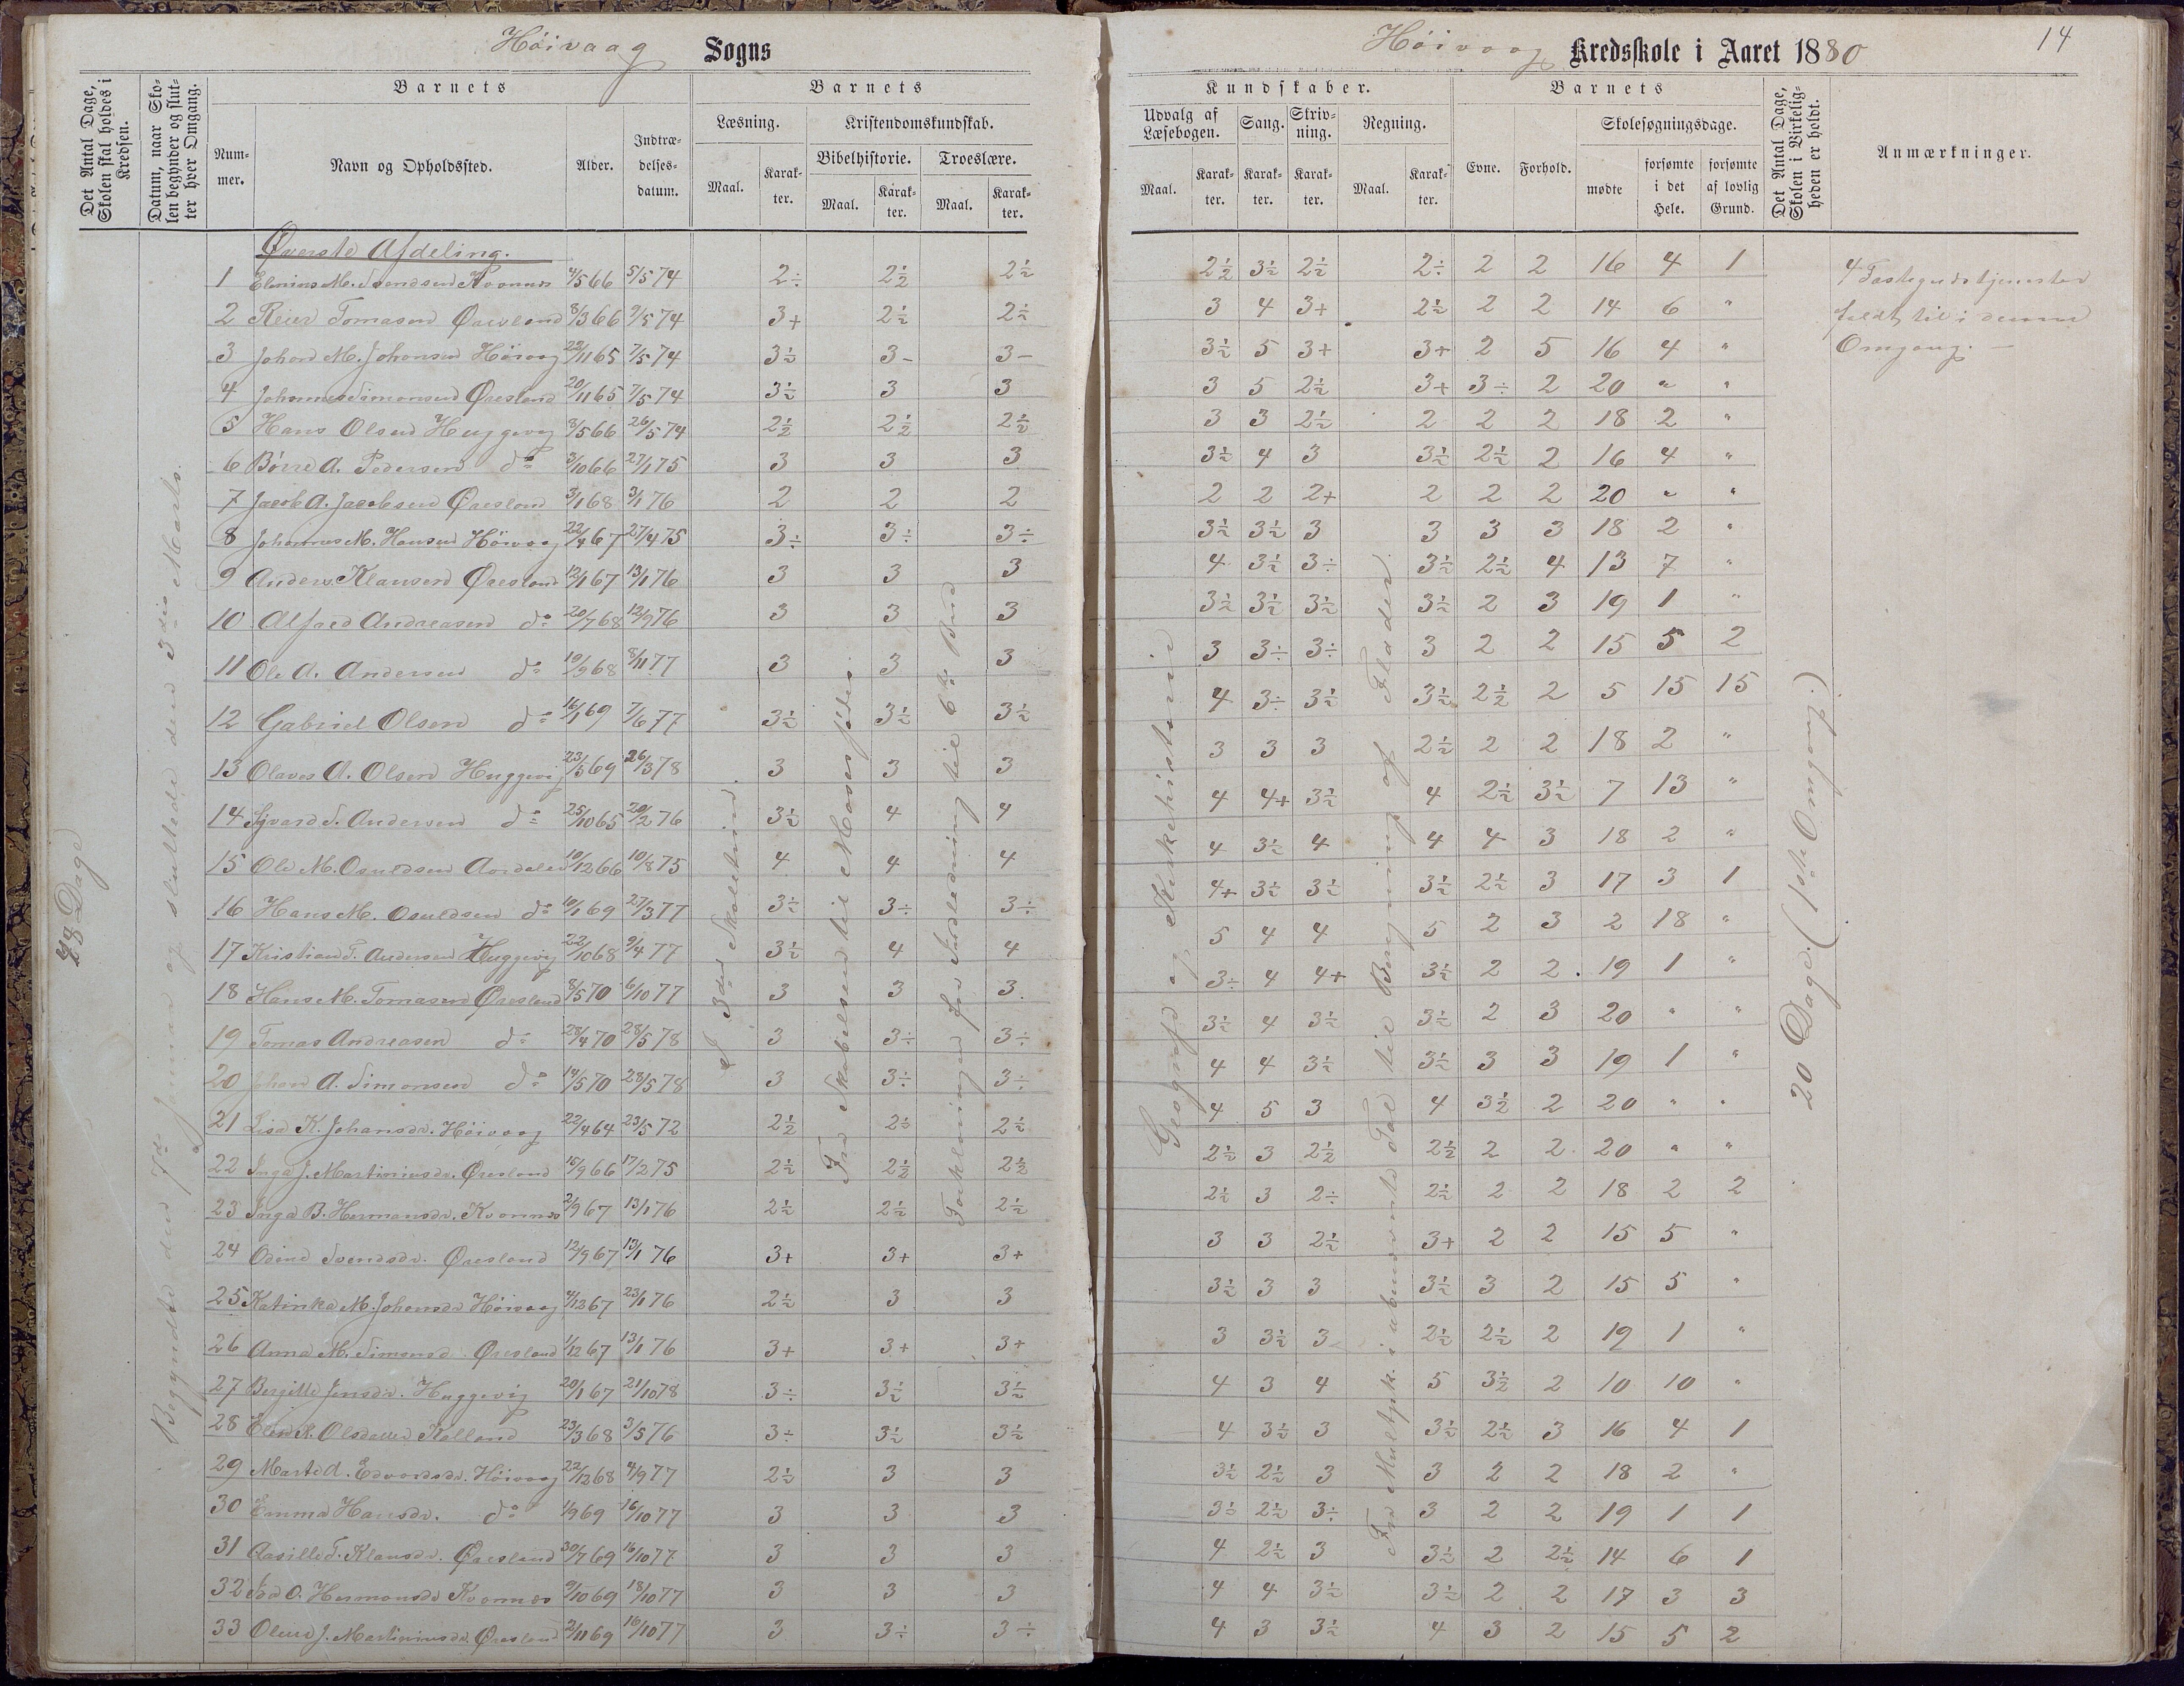 Høivaag Sogns
Det Antal Dage, Skolen skal holdes i Kredsen.
Datum, naar Skolen begynder og slutter hver Omgang.
Barnets
Nummer.
Navn og Opholdssted.
Alder.
Indtrædelsesdatum.
Barnets
Læsning.
Maal.
Karakter.
Kristendomskundskab.
Bibelhistorie.
Maal.
Karakter.
Troeslære.
Maal.
Karakter.
48 Dage
Begyndte den 7de Januar og sluttede den 3die Marts.
I 3die Skoletrin.
Fra Skabelsen til Moses fødes.
Forklaringen fra Indledning til 6te Bud
Øverste Afdeling.
1 4/5 66 5/5 74 2÷ 2½ 2½
2 Reier Tomasen Øresland 8/3 66 9/5 74 3+ 2½ 2½
3 Johan M. Johansen Høivaag 22/11 65 7/5 74 3½ 3- 3-
4 Johannes Simonsen Øresland 20/11 65 7/5 74 3½ 3 3
5 Hans Olsen Huggevig 8/5 66 26/5 74 2½ 2½ 2½
6 Børre A. Pedersen do 3/10 66 27/1 75 3 3 3
7 Jacob A. Jacobsen Øresland 3/1 68 3/1 76 2 2 2
8 Johannes M. Hansen Høivaag 22/4 67 27/4 75 3÷ 3÷ 3÷
9 Anders Klausen Øresland 12/1 67 13/1 76 3 3 3
10 Alfred Andreasen do 20/7 68 12/9 76 3 3 3
11 Ole A. Andersen do 10/9 68 8/11 77 3 3 3
12 Gabriel Olsen do 16/1 69 7/6 77 3½ 3½ 3½
13 Olaves A. Olsen Huggevig 23/3 69 26/3 78 3 3 3
14 S. Andersen do 25/10 65 29/2 76 3½ 4 4
15 Ole M. Osuldsen Aardalen 10/12 66 10/8 75 4 4 4
16 Hans M. Osuldsen do 10/1 69 27/3 77 3½ 3÷ 3÷
17 Kristian T. Andersen Huggevig 22/10 68 9/4 77 3½ 4 4
18 Hans M. Tomasen Øresland 8/5 70 6/10 77 3 3 3
19 Tomas Andreasen do 28/4 70 28/5 78 3 3÷ 3÷
20 Johan A. Simonsen do 14/5 70 28/5 78 3 3÷ 3÷
21 Lisa K. Johansdr. Høivaag 22/4 64 23/5 72 2½ 2½ 2½
22 Inga J. Martiniusdr. Øresland 15/9 66 17/2 75 2½ 2½ 2½
23 Inga B. Hermansdr. Kvannes 2/9 67 13/1 76 2½ 2½ 2½
24 Svendsdr. Øresland 12/9 67 13/1 76 3+ 3+ 3+
25 Katinka M. Johansdr Høivaag 4/12 67 23/1 76 2½ 3 3
26 Anna M. Simonsd. Øresland 1/12 67 13/1 76 3+ 3+ 3+
27 Bergitte Jensdr. Huggevig 20/1 67 21/10 78 3÷ 3½ 3½
28 Olsdatter Kalland 23/3 68 3/5 76 3÷ 3½ 3½
29 A. Edvardsdr. Høivaag 22/12 68 4/9 77 2½ 3 3
30 Emma Hansdr. do 1/9 69 16/10 77 3 3 3
31 T. Klausdr. Øresland 30/7 69 16/10 77 3 3 3
32 O. Hermansdr Kvannes 9/10 69 18/10 77 3 3 3
33 J. Martiniusdr. Øresland 2/11 69 16/10 77 3 3÷ 3÷
Høivaag Kredsskole i Aaret 1880
14
Kundskaber.
Udvalg af Læsebogen.
Maal.
Karakter.
Sang.
Karakter.
Skrivning.
Karakter.
Regning.
Maal.
Karakter.
Barnets
Evne.
Forhold.
Skolesøgningsdage.
mødte
forsømte i det Hele.
forsømte af lovlig Grund.
Det Antal Dage, Skolen i Virkeligheden er holdt.
Anmærkninger.
Geografi og Kirkehistorie
Fra Multipk. i ubenævnte Tal til Beregning af Flader.
20 Dage. (1ste Omgang.)
4 Fastegudstjenester
faldt til i denne
Omgang. —
2½ 3½ 2½ 2÷ 2 2 16 4 1
3 4 3+ 2½ 2 2 14 6 "
3½ 5 3+ 3+ 2 5 16 4 "
3 5 2½ 3+ 3÷ 2 20 " "
3 3 2½ 2 2 2 18 2 "
3½ 4 3 3½ 2½ 2 16 4 "
2 2 2+ 2 2 2 20 " "
3½ 3½ 3 3 3 3 18 2 "
4 3½ 3÷ 3½ 2½ 4 13 7 "
3½ 3½ 3½ 3½ 2 3 19 1 "
3 3÷ 3÷ 3 2 2 15 5 2
4 3÷ 3½ 3½ 2½ 2 5 15 15
3 3 3 2½ 2 2 18 2 "
4 4+ 3½ 4 2½ 3½ 7 13 "
4 3½ 4 4 4 3 18 2 "
4+ 3½ 3½ 3½ 2½ 3 17 3 1
5 4 4 5 2 3 2 18 "
3÷ 4 4+ 3½ 2 2 19 1 "
3½ 4 3½ 3½ 2 3 20 " "
4 4 3½ 3½ 3 3 19 1 "
4 5 3 4 3½ 2 20 " "
2½ 3 2½ 2½ 2 2 20 " "
2½ 3 2÷ 2½ 2 2 18 2 2
3 3 2½ 3+ 2 2 15 5 "
3½ 3 3 3½ 3 2 15 5 "
3 3½ 3 2½ 2½ 2 19 1 "
4 3 4 5 3½ 2 10 10 "
4 3½ 3 3½ 2½ 3 16 4 1
3½ 2½ 3 3 2 2 18 2 "
3½ 2½ 3÷ 3 2 2 19 1 1
4 2½ 3 3½ 2 2½ 14 6 1
4 4 3½ 3½ 2 2 17 3 3
4 3 3½ 4 3 2 15 5 2